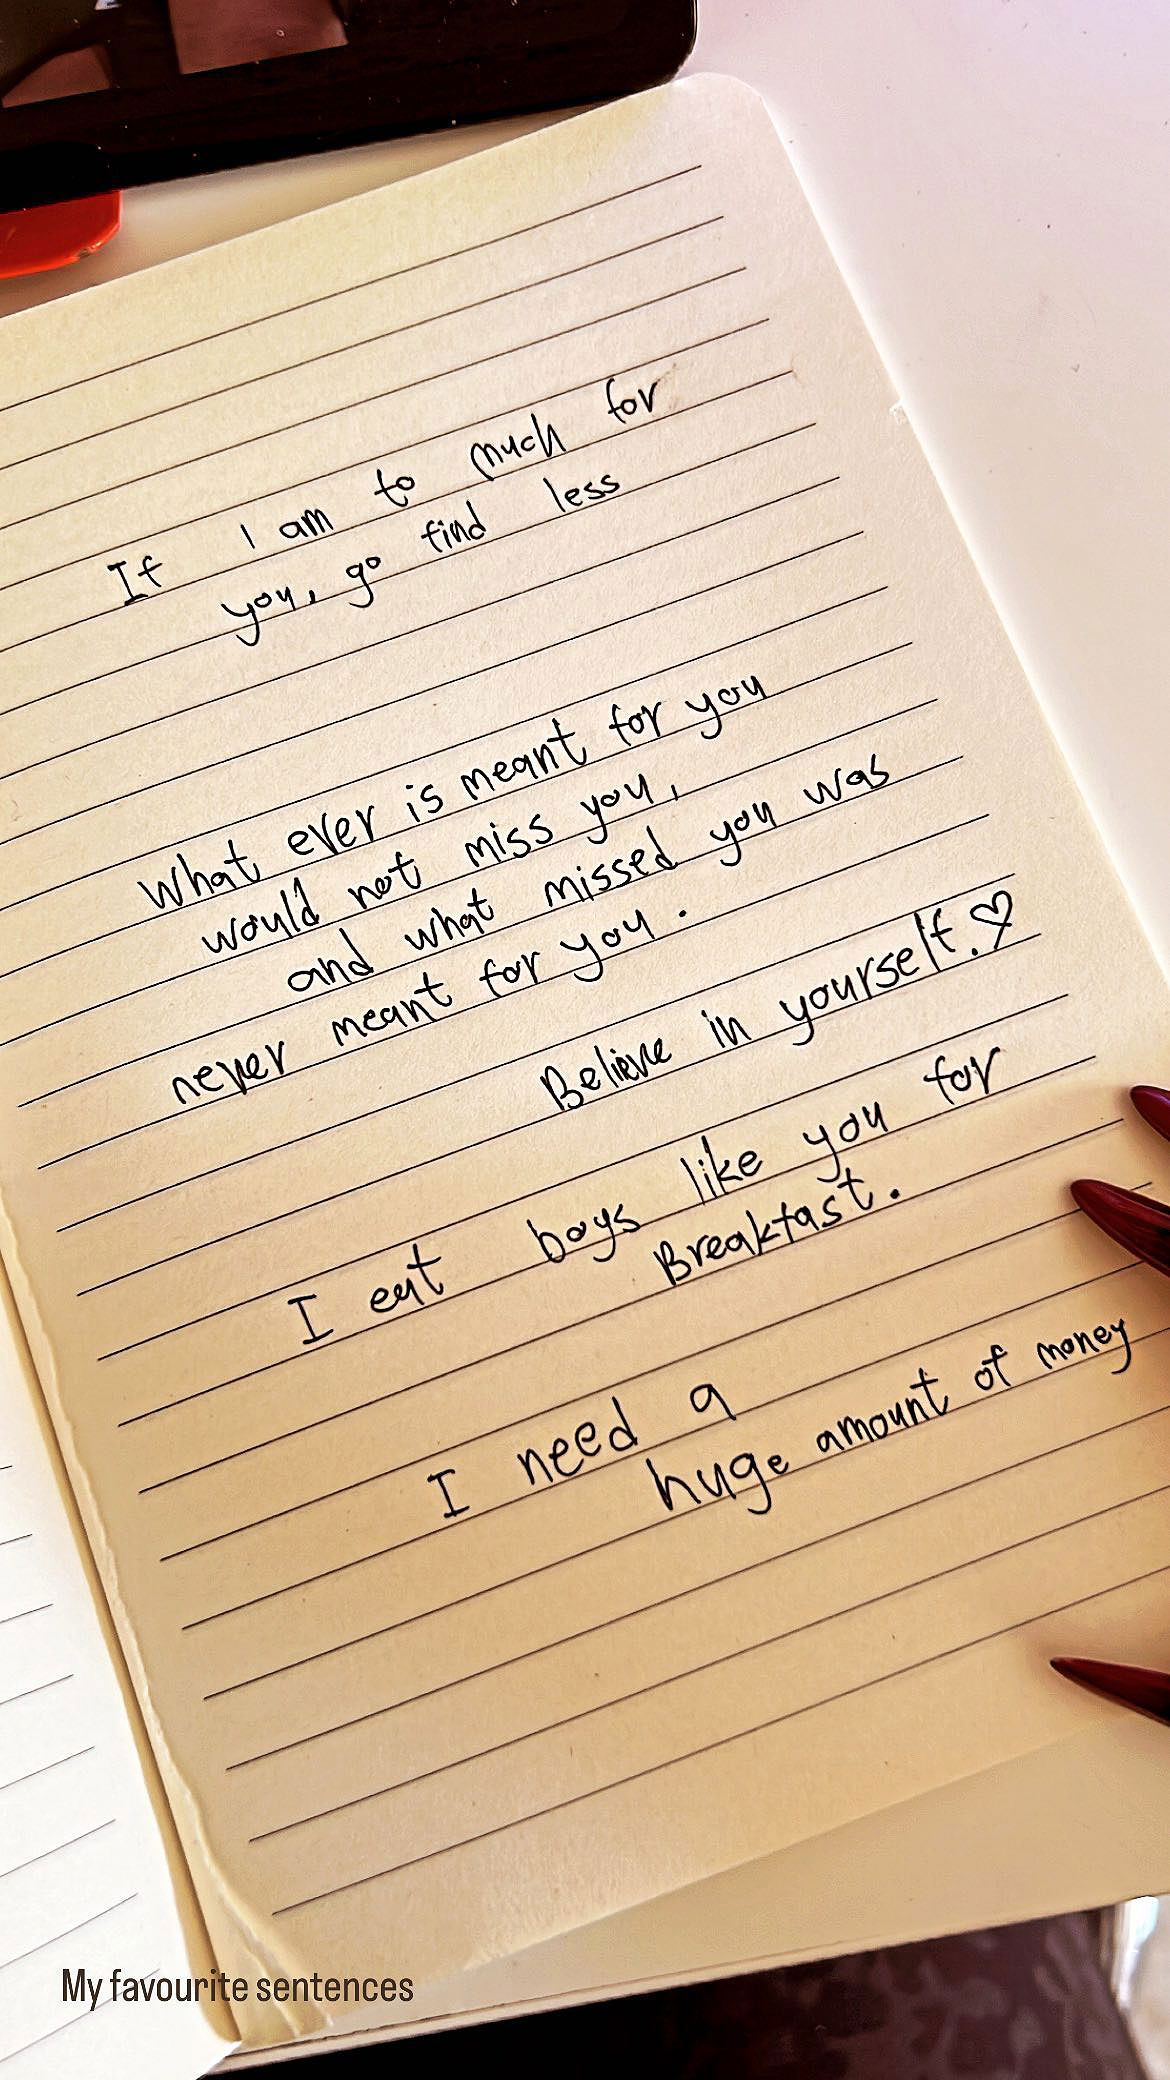 If I am to much for
you, go find less
What ever is meant for you
would not miss you,
and what missed you was
never meant for you.
Believe in yourself.♡
I eat boys like you for
Breakfast.
I need a
huge amount of money
My favourite sentences